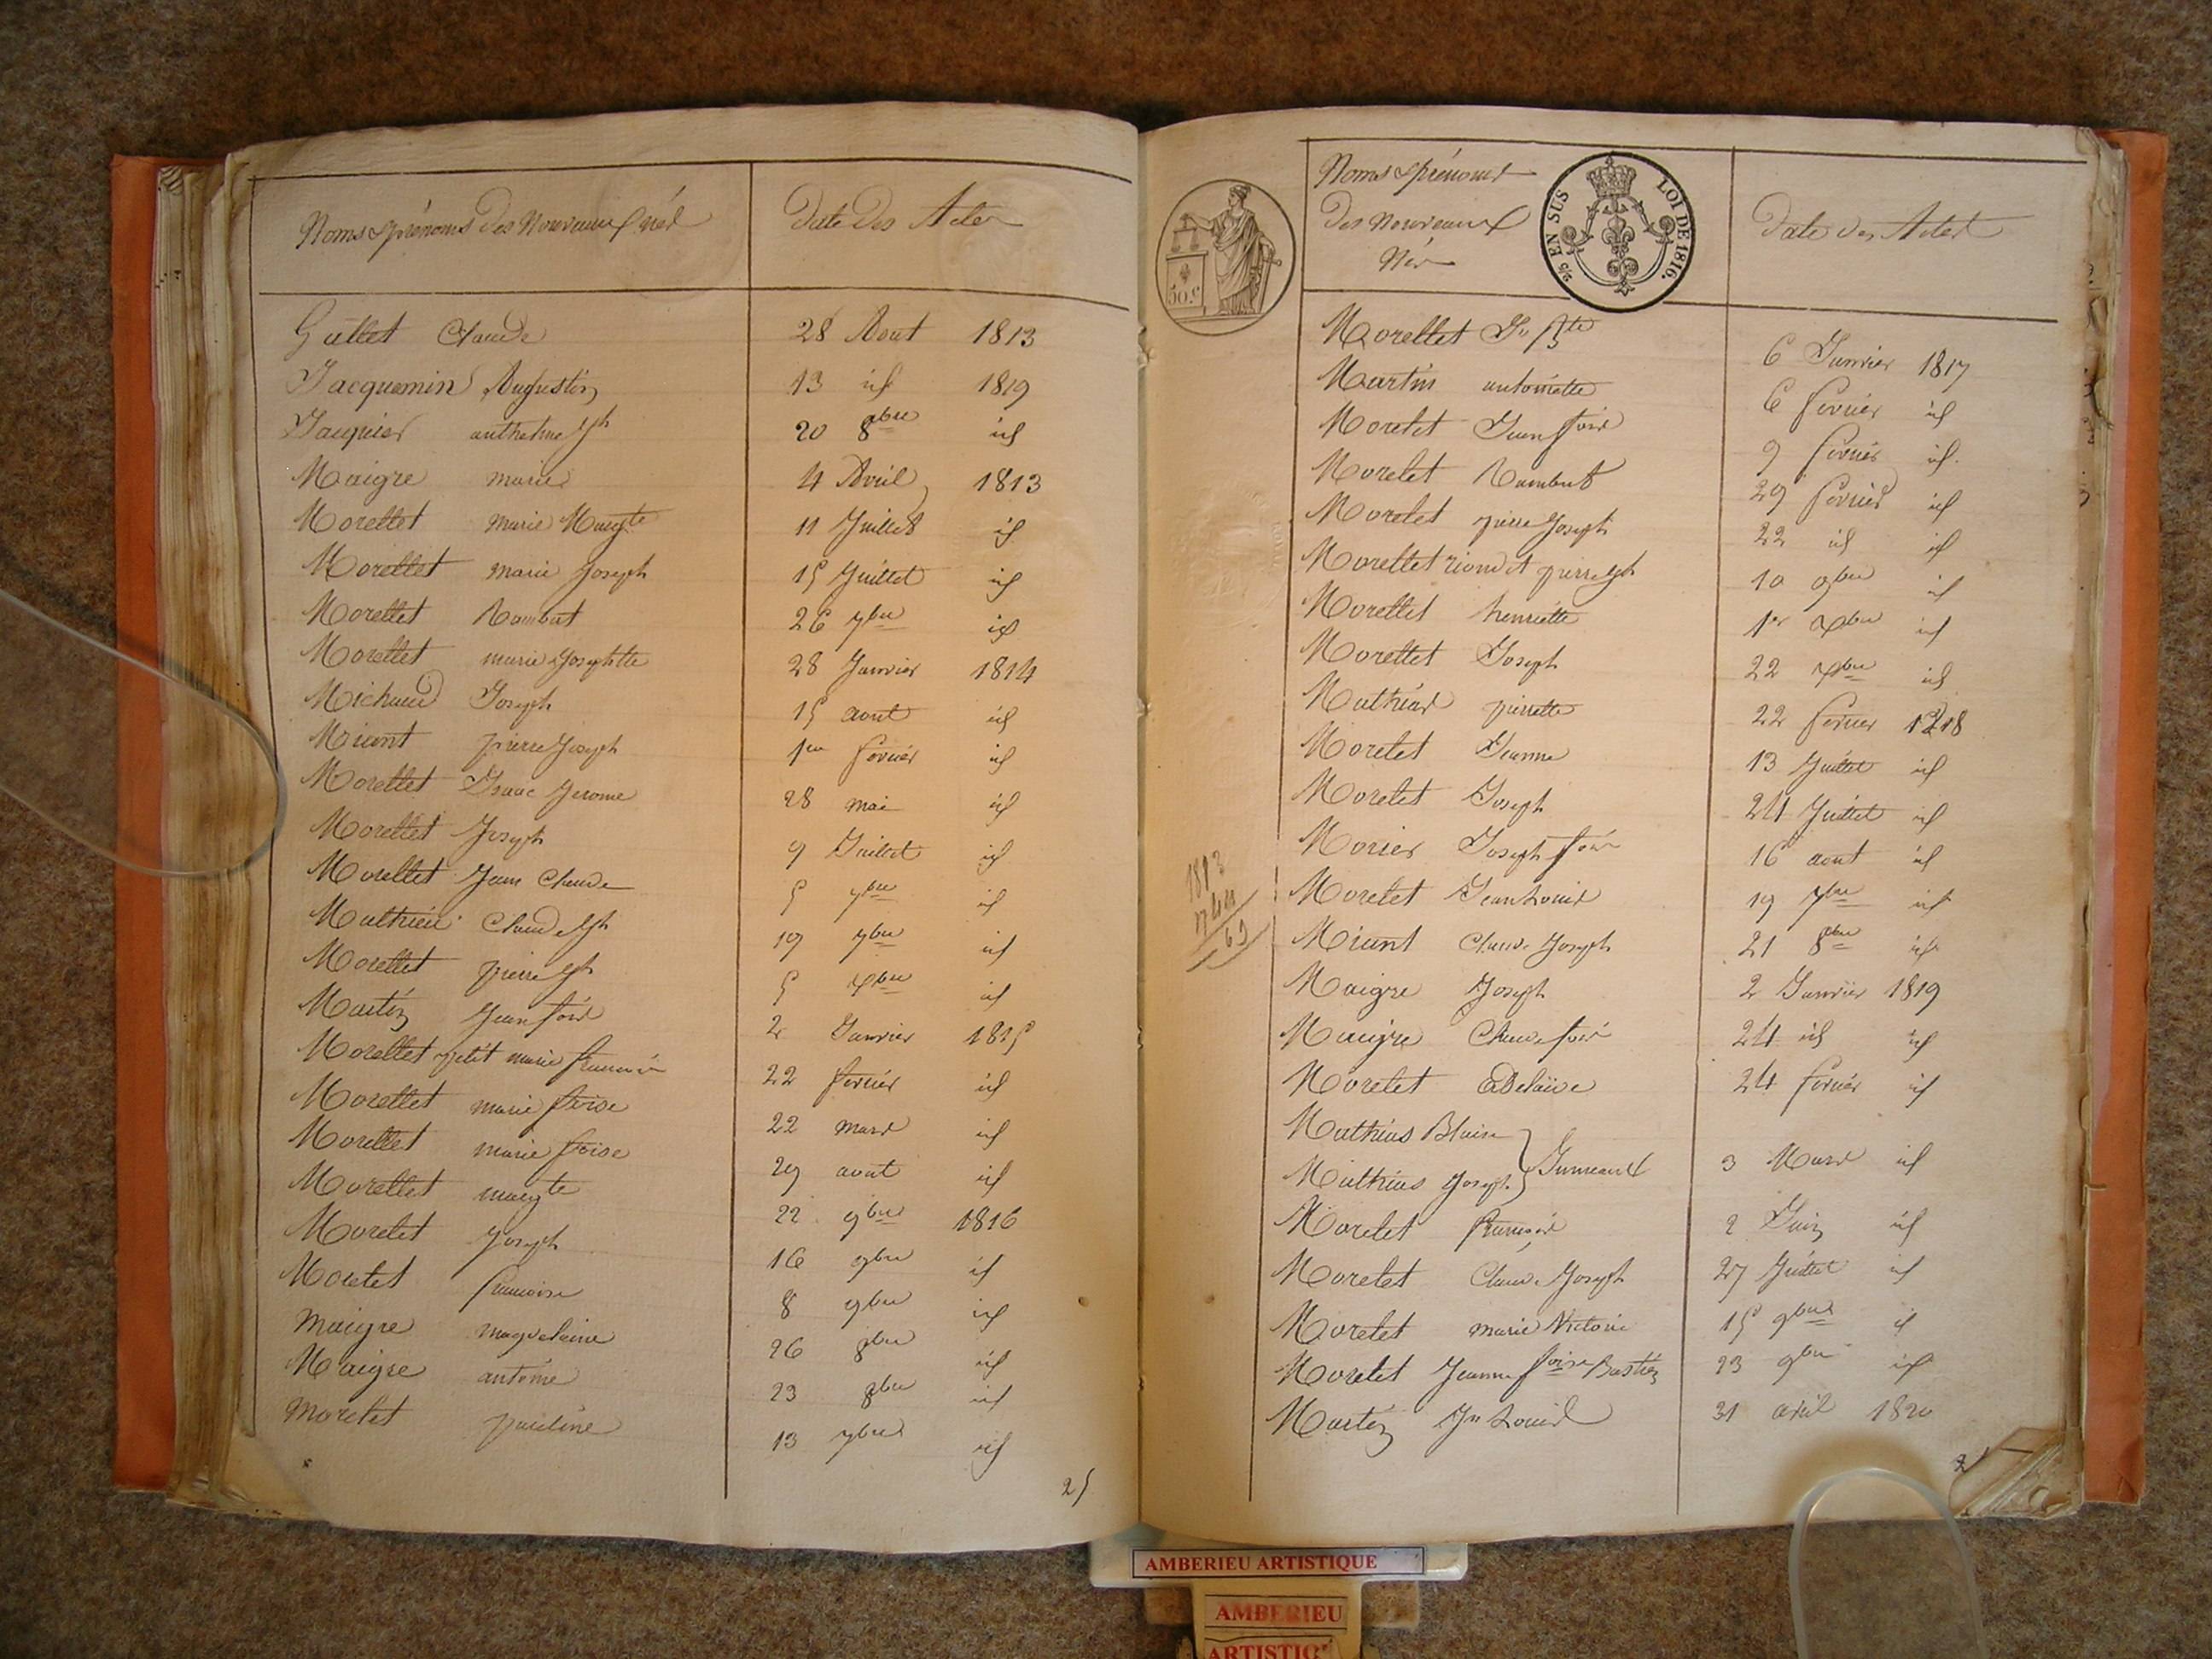 Noms & prénoms des Nouveaux nés	Date des Actes
Gullet Claude	28 Aout 1813
Jacquemin Augustin	13 id 1819
Jacquier anthelme Jph	20 8bre id
Maigre marie	4 Avril 1813
Morellet marie Margte	11 Juillet id
Morellet marie Joseph	15 Juillet id
Morellet Rambert	26 7bre id
Morellet marie Josephtte	28 Janvier 1814
Michaud Joseph	15 aout id
Miant pierre Joseph	1er fevrier id
Morellet Isaac Jerome	28 mai id
Morellet Joseph	9 Juillet id
Morellet Jean Claude	5 7bre id
Mathieu Claude Jph	19 7bre id
Morellet pierre Jph	5 Xbre id
Martin Jean fois	2 Janvier 1815
Morellet petit marie francois	22 fevrier id
Morellet marie froise	22 mars id
Morellet marie froise	29 aout id
Morellet margte	22 9bre 1816
Morelet Joseph	16 9bre id
Morelet francoise	8 9bre id
Maigre magdelaine	26 8bre id
Maigre antoine	23 8bre id
Morelet pauline	13 7bre id
25
50 c
2/5 EN SUS LOI DE 1816.
Noms & prénoms
des Nouveaux
Nés	Date des Actes
Morellet Jn Bte	6 Janvier 1817
Martin antoinette	6 fevrier id
Morelet Jean fois	9 fevrier id
Morelet Rambert	29 fevrier id
Morelet pierre Joseph	22 id id
Morellet riondet pierre Jph	10 9bre id
Morellet henriette	1er Xbre id
Morellet Joseph	22 Xbre id
Mathias pierrette	22 fevrier 1818
Morelet Jeanne	13 Juillet id
Morelet Joseph	24 Juillet id
Morier Joseph fois	16 aout id
Morelet Jean Louis	19 7bre id
Miant Claude Joseph	21 8bre id
Maigre Joseph	2 Janvier 1819
Maigre Claude fois	24 id id
Morelet adelaïde	24 fevrier id
Mathias Blaise
Mathias Joseph } Jumeaux	3 Mars id
Morelet françois	2 Juin id
Morelet Claude Joseph	27 Juillet id
Morelet marie Victoire	15 9bre id
Morelet Jeanne foise Bastien	23 9bre id
Martin Jn Louis	31 avril 1820
1813
744
69
AMBERIEU ARTISTIQUE
AMBERIEU